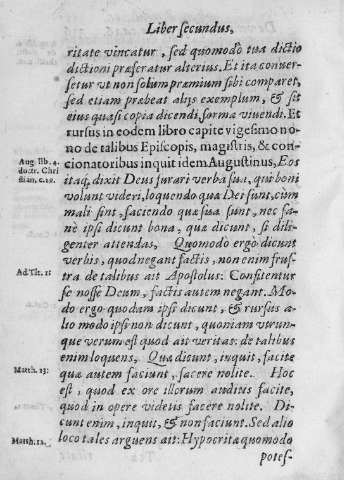 Liber secundus,
ritate vincatur, sed quomodò tua dictio
dictioni præferatur alterius. Et ita conver-
setur ut non solum præmium sibi comparet,
sed etiam præbeat alijs exemplum, & sit
eius quasi copia dicendi, forma vivendi. Et
rursus in eodem libro capite vigesimo no-
no de talibus Episcopis, magistris, & con-
cionatoribus inquit idem Augustinus, Eos
Aug. lib. 4.
doctr. Chri
stian. c.29.
itaq; dixit Deus furari verba sua, qui boni
volunt videri, loquendo quæ Dei sunt, cum
mali sint, faciendo quæ sua sunt, nec sa-
nè ipsi dicunt bona, quæ dicunt, si dili-
genter attendas, Quomodo ergò dicunt
verbis, quod negant factis, non enim frus-
Ad Tit. 1:
tra de talibus ait Apostolus: Confitentur
se nosse Deum, factis autem negant. Mo-
do ergo quodam ipsi dicunt, & rursus a-
lio modo ipsi non dicunt, quoniam verun-
que verum est quod ait veritas: de talibus
enim loquens, Quæ dicunt, inquit, facite
Matth. 23:
quæ autem faciunt, facere nolite. Hoc
est, quod ex ore illorum auditis facite,
quod in opere videtis facere nolite. Di-
cunt enim, inquit, & non faciunt. Sed alio
Matth. 12.
loco tales arguens ait: Hypocritæ quomodo
potes-